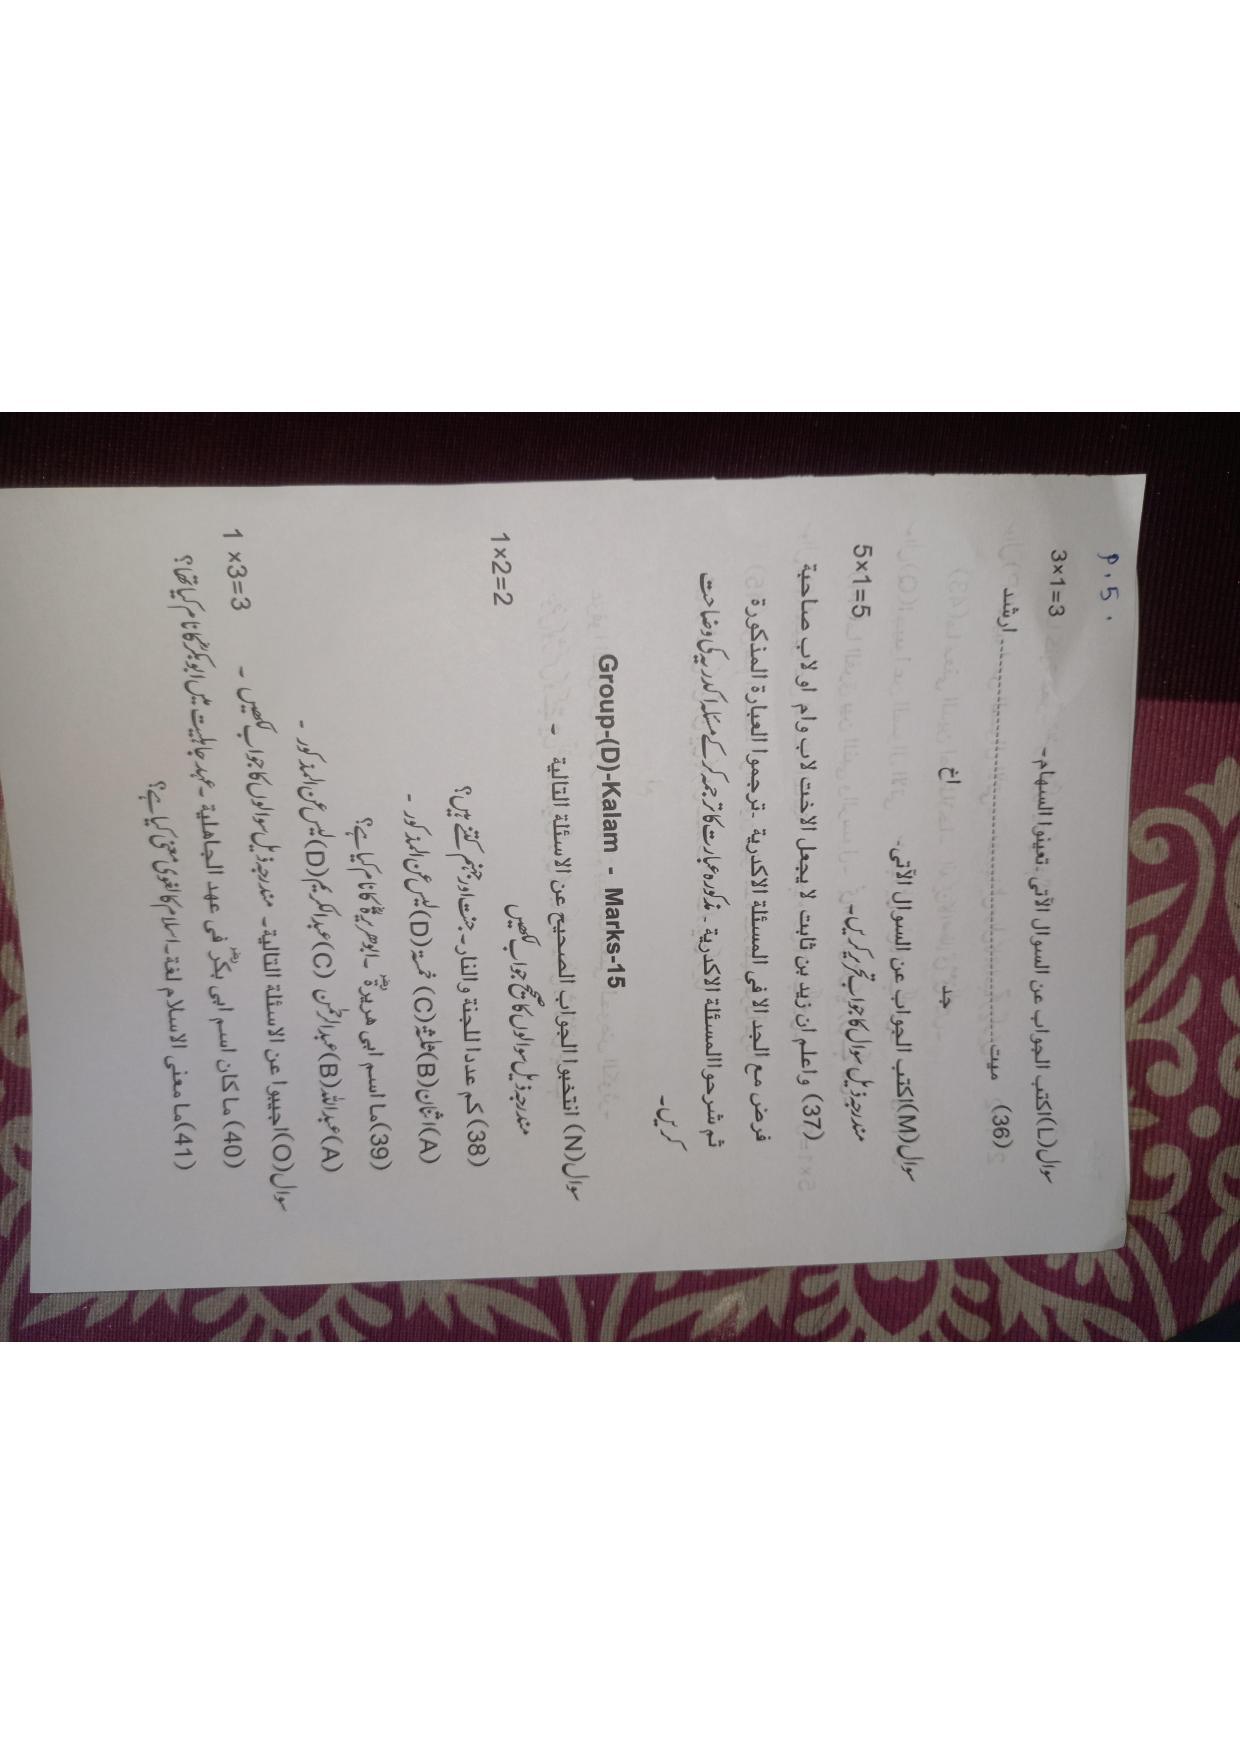 P.5.
سوال(L)اکتب الجواب عن السوال الآتی۔تعینوا السہام۔ 3×1=3
(36) میت ارشد
جد اخ
سوال(M)اکتب الجواب عن السوال الآتی۔
مندرجہ ذیل سوال کا جواب تحریر کریں۔ 5×1=5
(37) واعلم ان زید بن ثابت لا یجعل الاخت لاب وام او لاب صاحبة
فرض مع الجد الا فی المسئلة الاکدریة ۔ترجموا العبارة المذکورة
ثم شرحوا المسئلة الاکدریة ۔ مذکورہ عبارت کا ترجمہ کرکے مسئلہ اکدریہ کی وضاحت
کریں۔
Group-(D)-Kalam - Marks-15
سوال(N) انتخبوا الجواب الصحیح عن الاسئلة التالیة ۔
مندرجہ ذیل سوالوں کا صحیح جواب لکھیں 1×2=2
(38) کم عددا للجنة والنار۔جنت اور جہنم کتنے ہیں؟
(A)اثنان(B)ثلثہ(C) خمسۃ(D)لیس عن المذکور ۔
(39)ما اسم ابی ھریرةؓ ۔ابوھریرہؓ کا نام کیا ہے؟
(A)عبداللہ(B)عبدالرحمٰن (C)عبدالکریم(D)لیس عن المذکور ۔
سوال(O)اجیبوا عن الاسئلة التالیة۔ مندرجہ ذیل سوالوں کا جواب لکھیں ۔ 1×3=3
(40) ما کان اسم ابی بکرؓ فی عھد الجاھلیة ۔عہد جاہلیت میں ابوبکرؓ کا نام کیا تھا؟
(41)ما معنی الاسلام لغة۔اسلام کا لغوی معنی کیا ہے؟